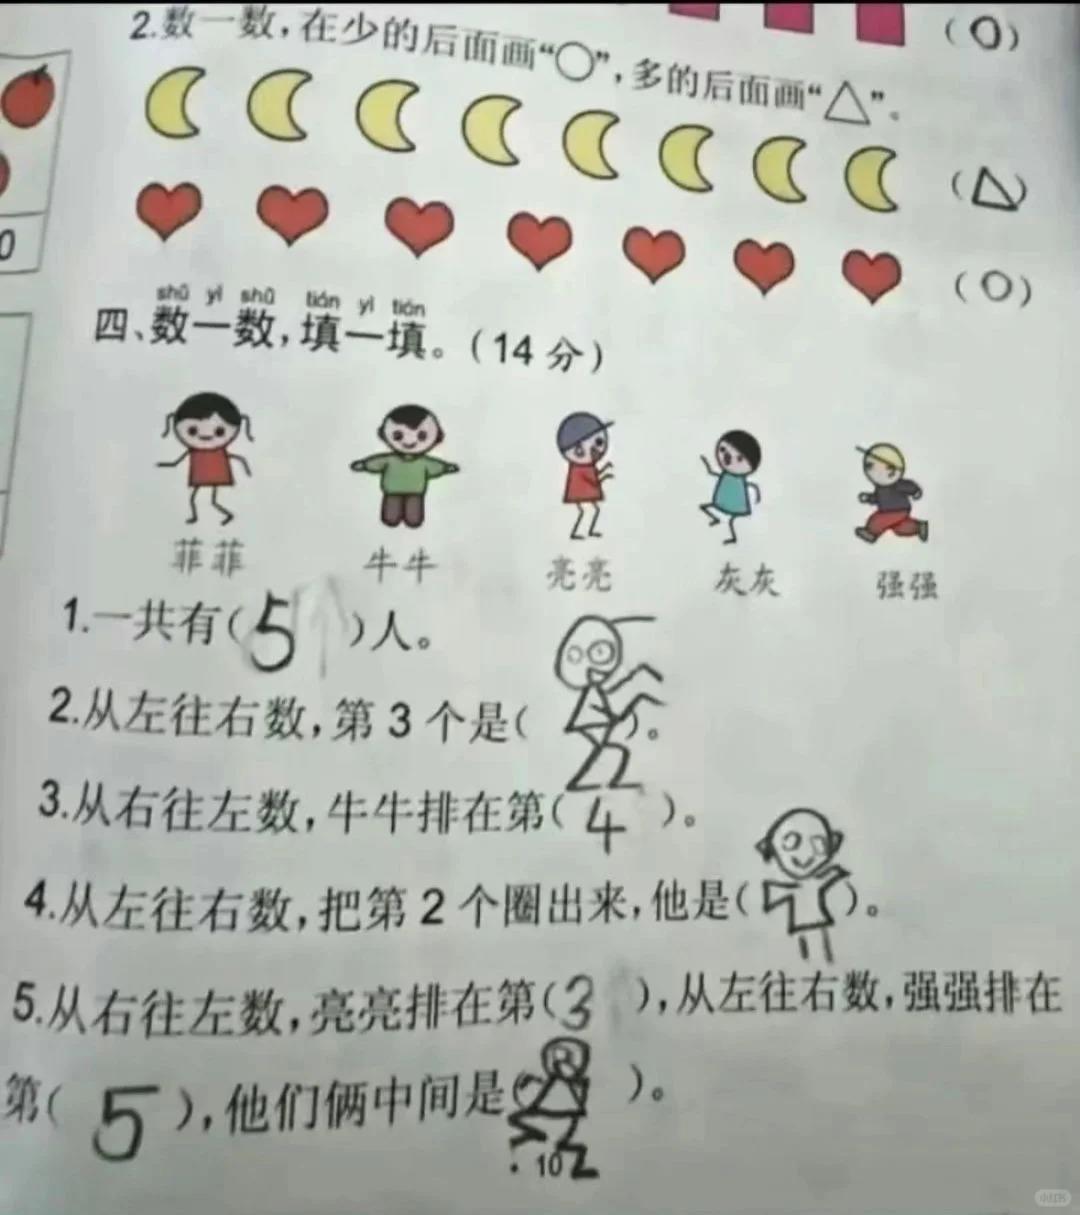 (○)
2.数一数,在少的后面画“○”,多的后面画“△”。
(△)
(○)
0
shǔ yì shǔ tián yì tián
四、数一数,填一填。(14分)
菲菲 牛牛 亮亮 灰灰 强强
1.一共有(5)人。
2.从左往右数,第3个是( )。
3.从右往左数,牛牛排在第(4)。
4.从左往右数,把第2个圈出来,他是( )。
5.从右往左数,亮亮排在第(3),从左往右数,强强排在
第(5),他们俩中间是( )。
· 10
小红书